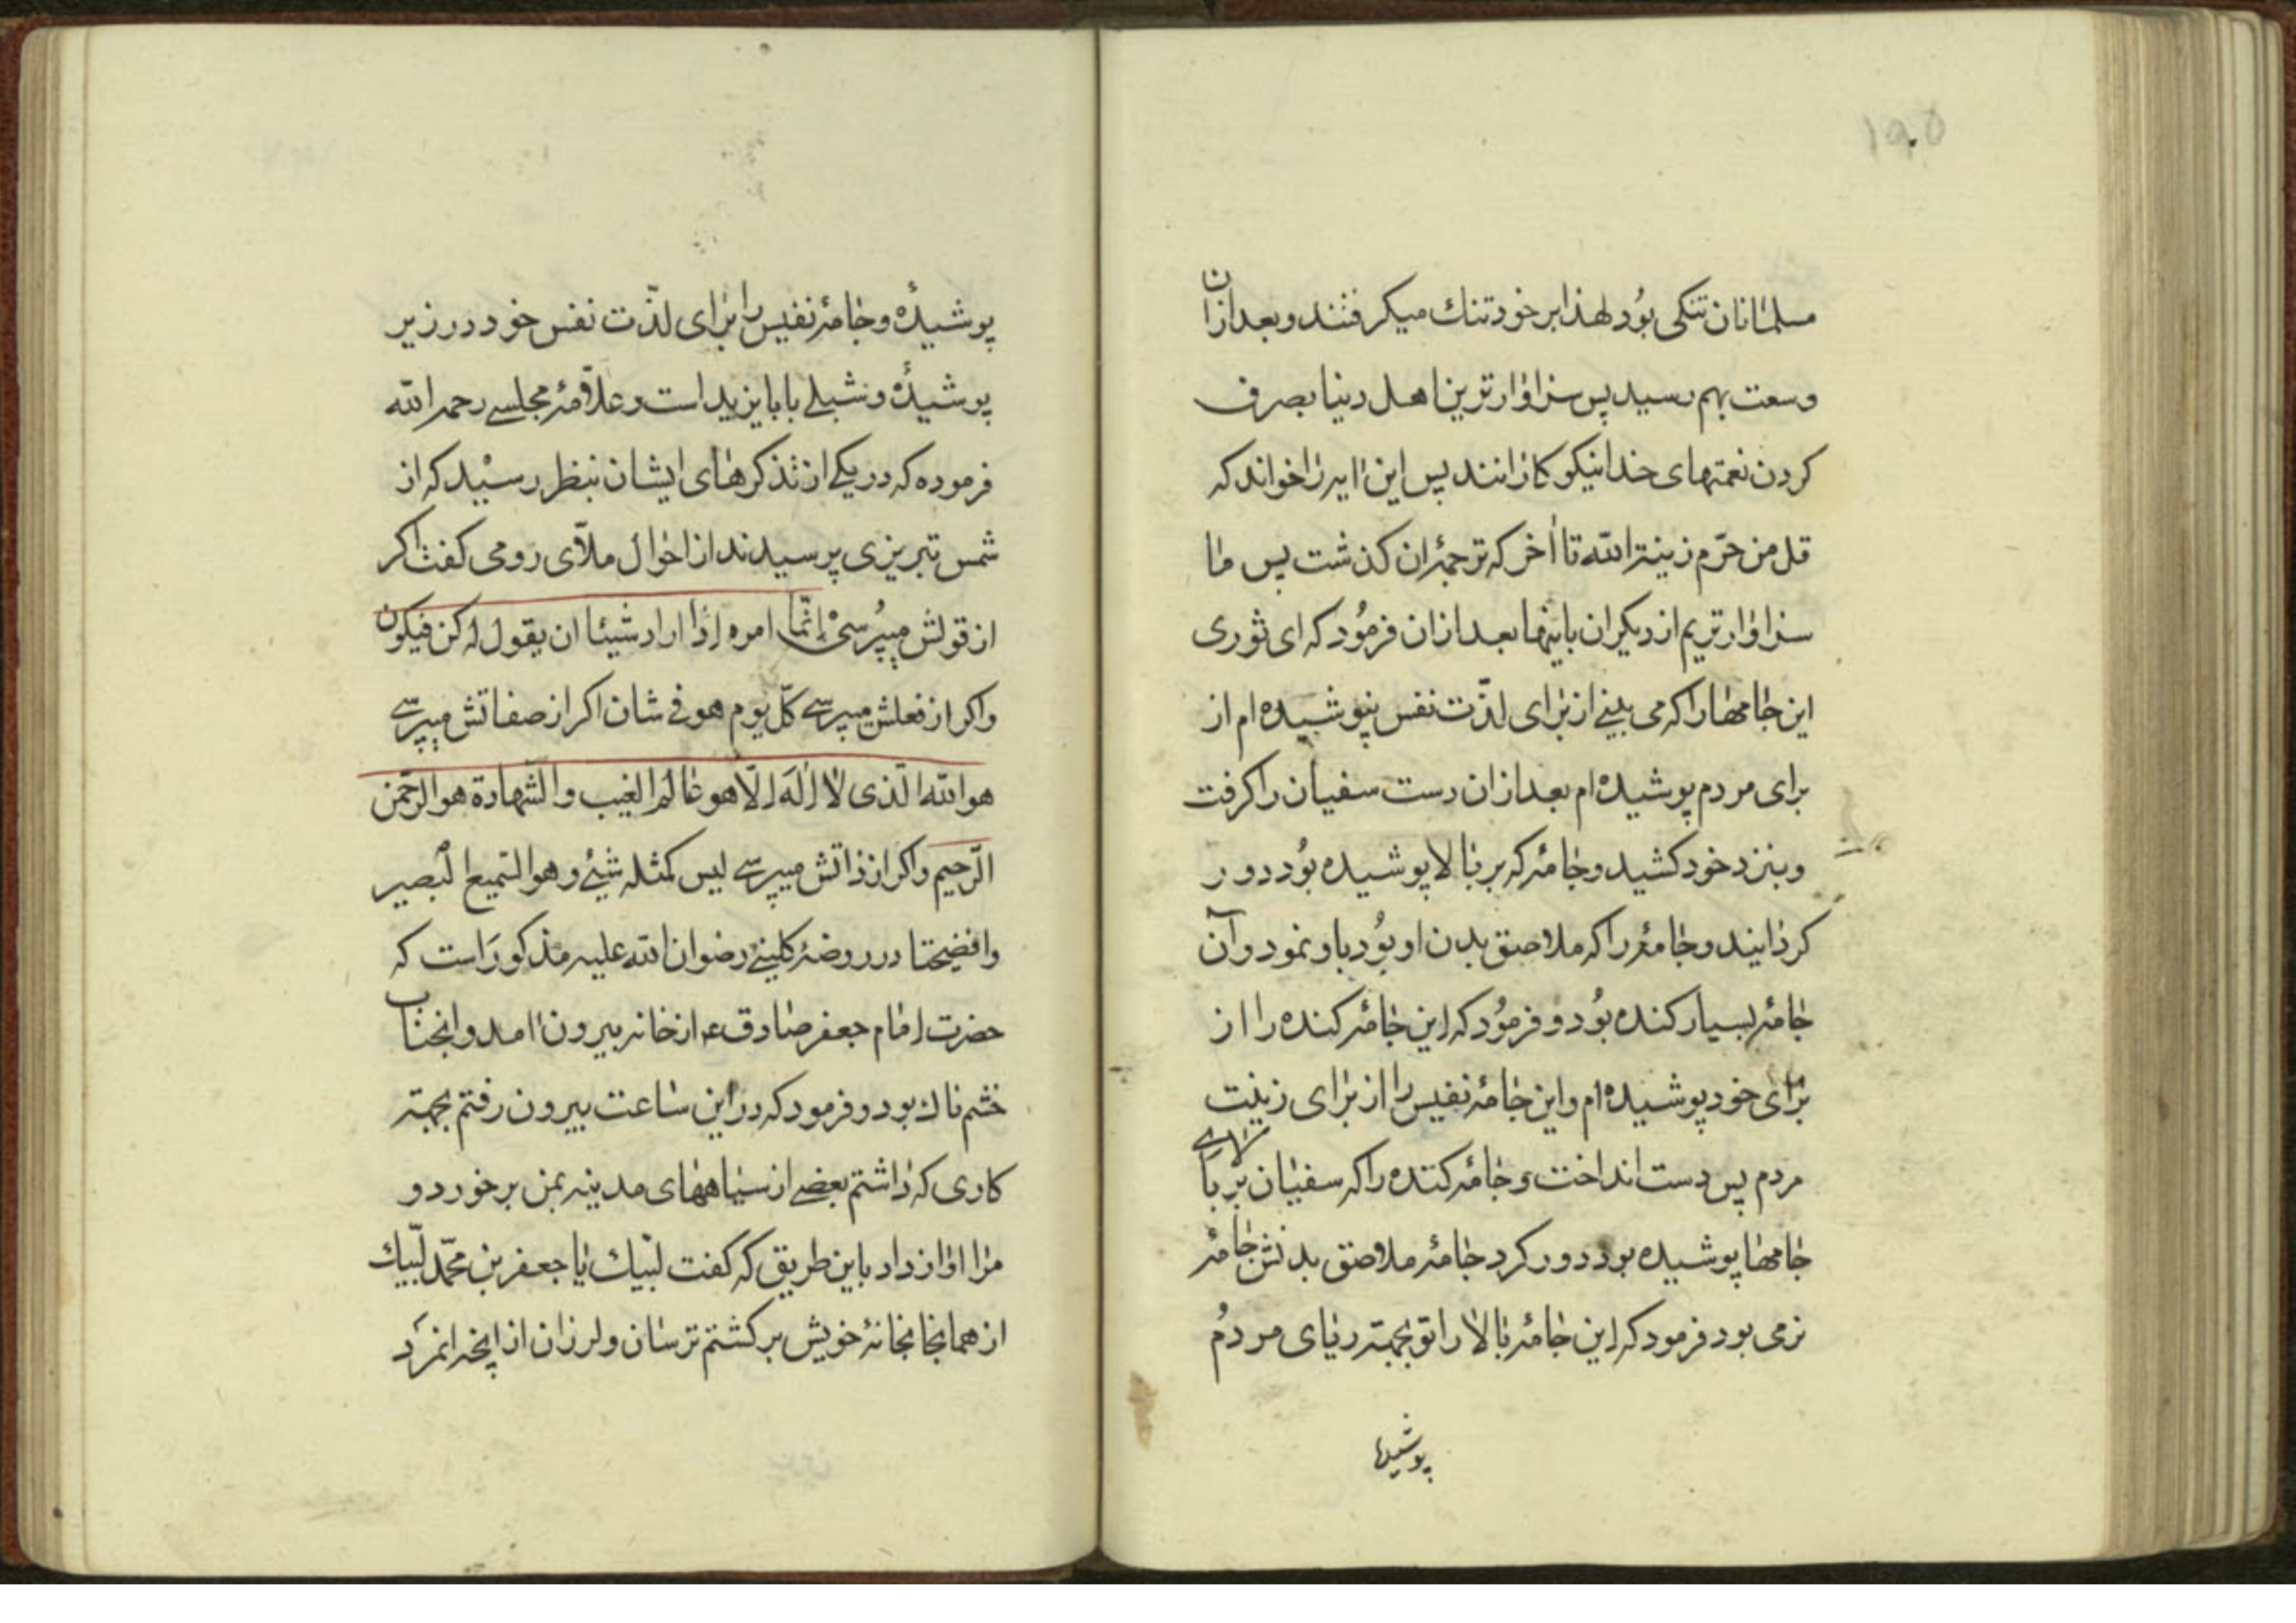 ۱۹۰۵
مسلمانان تنکی بُود لهذا بر خود تنك میکرفتند و بعد ازان
وسعت بهم رسید پس سزاوار ترین اهل دنیا بصرف
کردن نعمتهای خدا نیکو کارانند پس این ایه را خواند که
قل من حرّم زینة الله تا اخر که ترجمۀ ان کذشت پس ما
سزاوار تریم از دیکران باینها بعد ازان فرمُود که ای ثوری
این جامها را که می بینے از برای لذّت نفس نپوشیده ام از
برای مردم پوشیده ام بعد ازان دست سفیان را کرفت
و بنزد خود کشید و جامۀ که بر بالا پوشیده بُود دور
کردانید و جامۀ را که ملاصق بدن او بُود باو نمود و آن
جامۀ بسیار کنده بُود و فرمُود که این جامۀ کنده را از
برای خود پوشیده ام و این جامۀ نفیس را از برای زینت
مردم پس دست انداخت و جامۀ کنده را که سفیان بر بالای
جامها پوشیده بود دور کرد جامۀ ملاصق بدنش جامۀ
نرمی بود فرمود که این جامۀ بالا را تو بجهة ریای مردُم
پوشیدۀ
پوشیدۀ و جامۀ نفیس را برای لذّت نفس خود در زیر
پوشیدۀ و شبلے با بایزید است و علّامۀ مجلسے رحمه الله
فرموده که در یکے از تذکرهای ایشان بنظر رسیْد که از
شمس تبریزی پرسیدند از احوال ملّای رومی کفت اکر
از قولش میپُرسیْ إنّما امره إذا اراد شیئا ان یقول له کن فیکون
و اکر از فعلش میپرسے کلّ یوم هو فی شان اکر از صفاتش میپرسے
هو الله الّذی لا إلهَ إلّا هو عالم الغیب والشّهادة هو الرّحمن
الرّحیم و اکر از ذاتش میپرسے لیس کمثله شیئ وهو السّمیع البصیر
وافضیحتا در روضۀ کلینے رضوان الله علیه مذکور است که
حضرت إمام جعفر صادق ع از خانه بیرون امد و انجناب
خشم ناك بود و فرمود که در این ساعت بیرون رفتم بجهة
کاری که داشتم بعضے از سیاههای مدینه بمن برخورد و
مرا اواز داد باین طریق که کفت لبّیك یا جعفر بن محمّد لبّیك
از همانجا بخانۀ خویش برکشتم ترسان و لرزان از انچه انمرَد